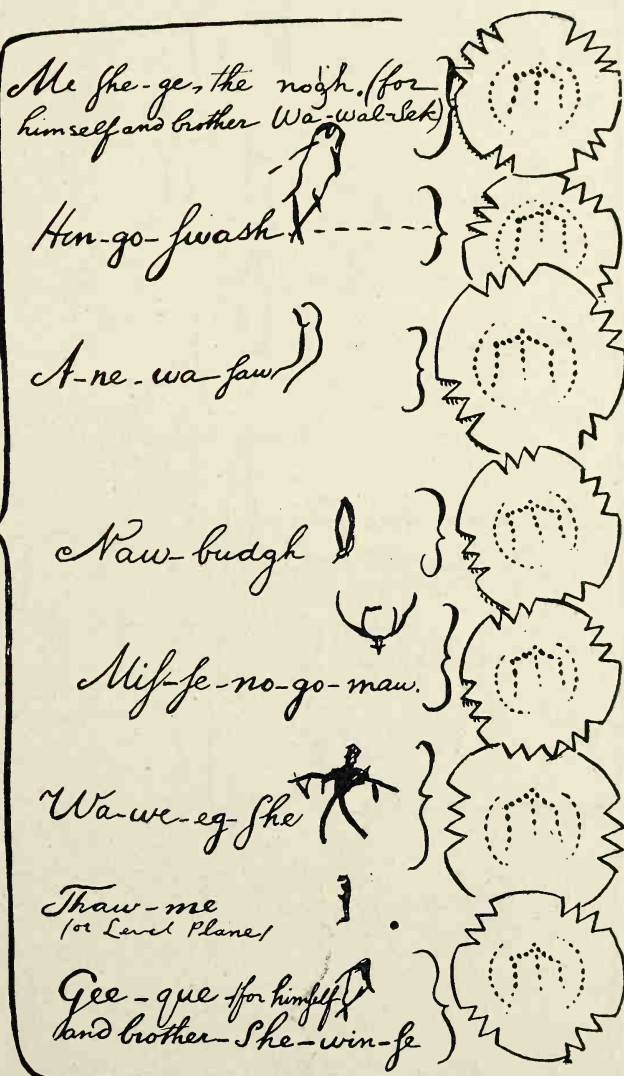 Me she-ge, the nogh. (for
himself and brother Wa-wal-sek)
Hin-go-swash
A-ne-wa-saw
Naw-budgh
Mis-se-no-go-maw.
Wa-we-eg-she
Thaw-me
(or Level Plane)
Gee-que (for himself
and brother-She-win-se